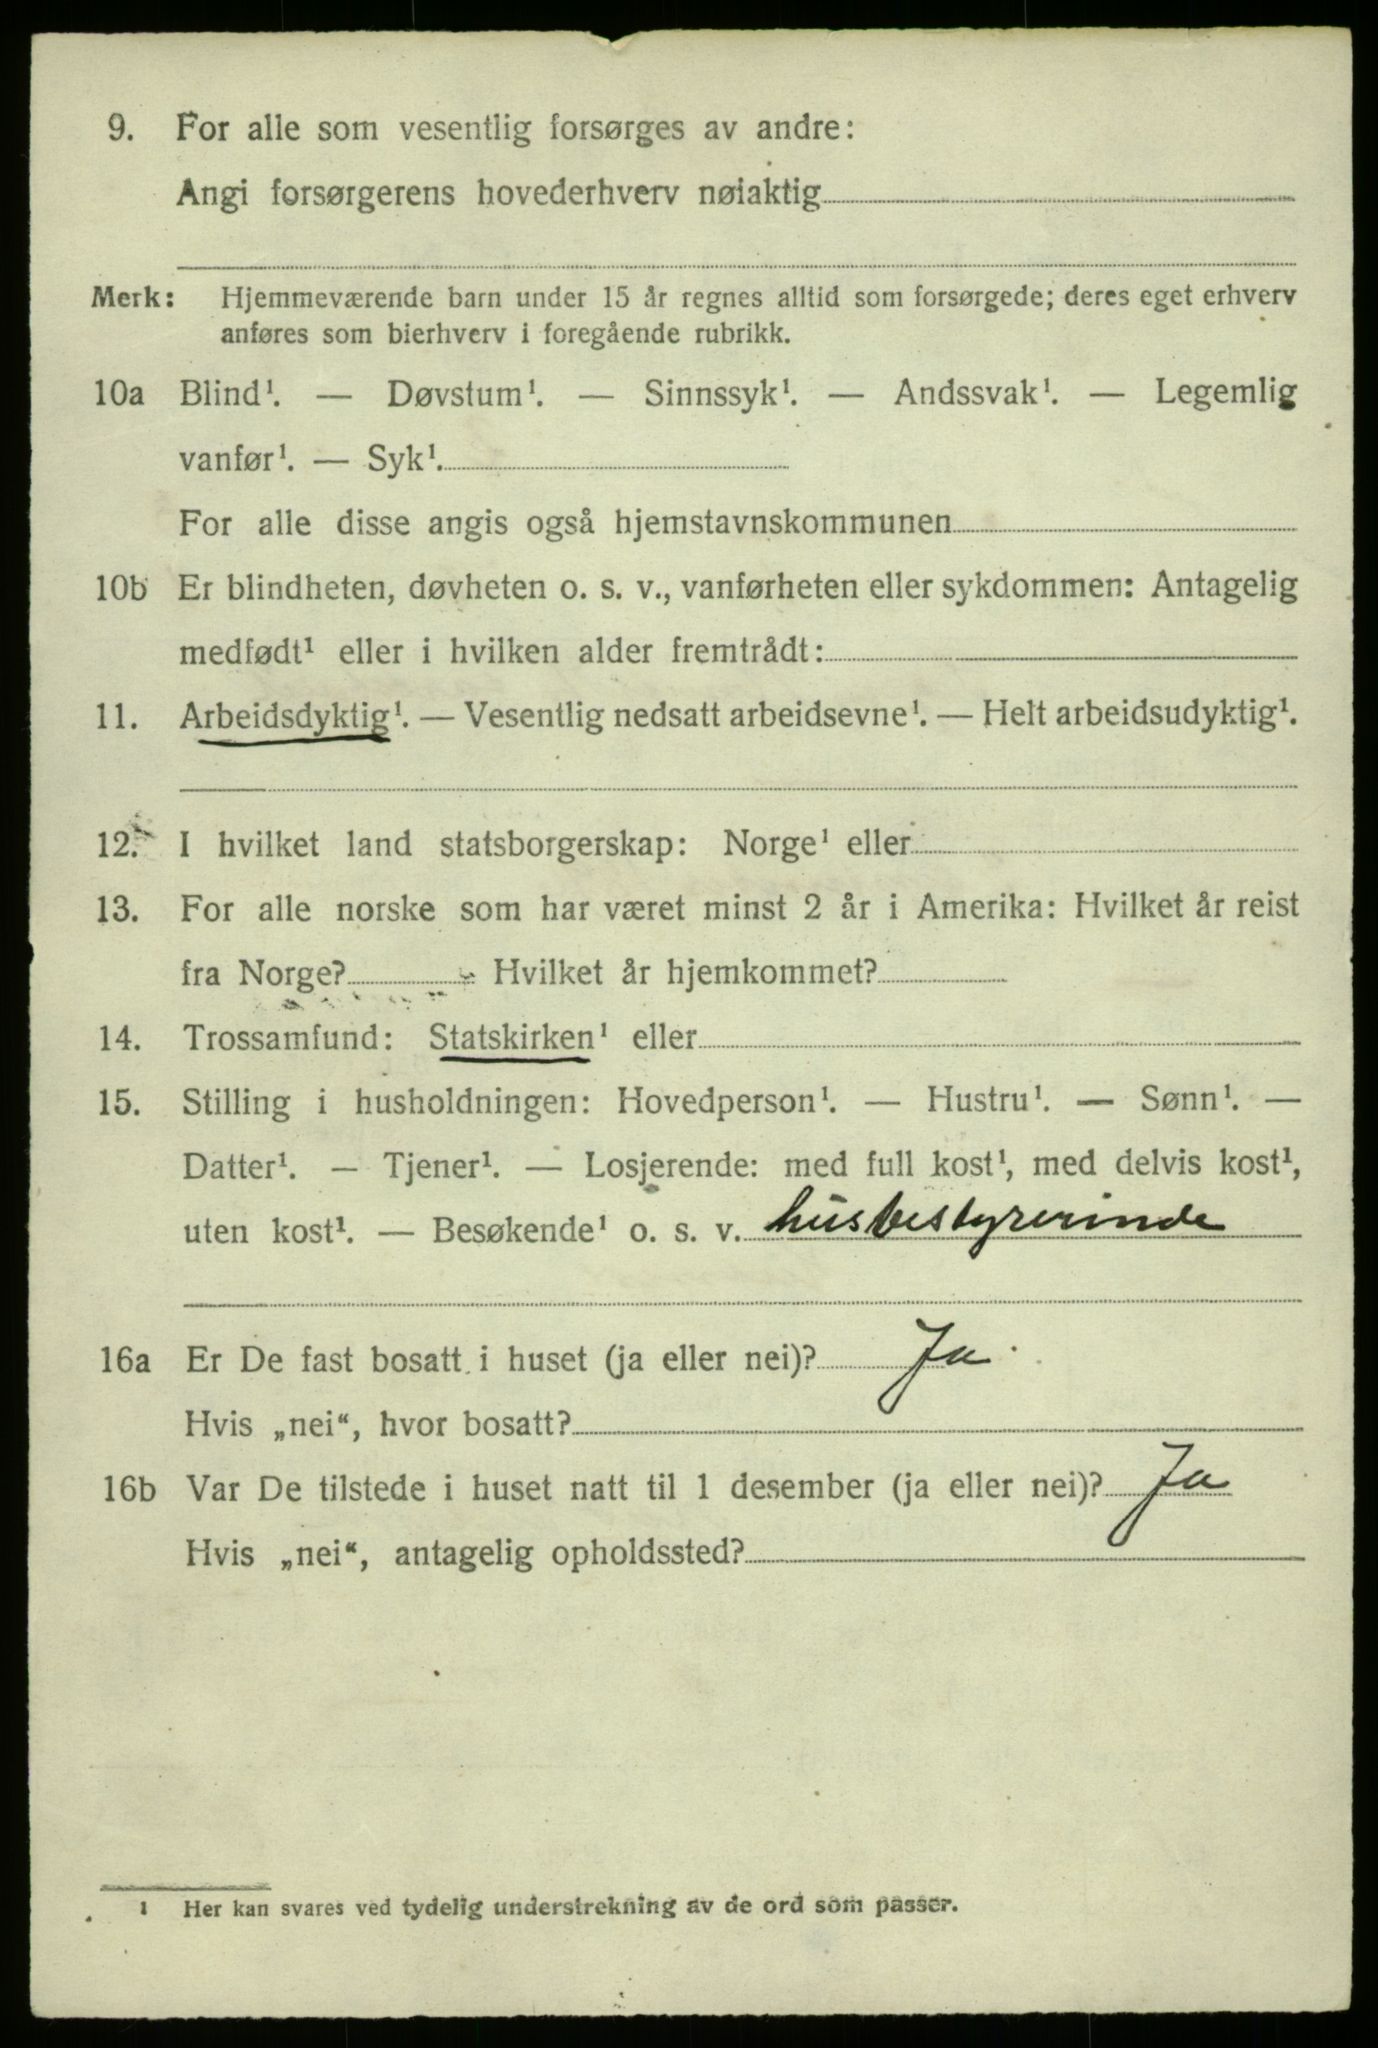 9. For alle som vesentlig forsørges av andre:
Angi forsørgerens hovederhverv nøiaktig
Merk: Hjemmeværende barn under 15 år regnes alltid som forsørgede; deres eget erhverv
anføres som bierhverv i foregående rubrikk.
10a Blind¹. — Døvstum¹. — Sinnssyk¹. — Andssvak¹. — Legemlig
vanfør¹. — Syk¹.
For alle disse angis også hjemstavnskommunen
10b Er blindheten, døvheten o. s. v., vanførheten eller sykdommen: Antagelig
medfødt¹ eller i hvilken alder fremtrådt:
11. Arbeidsdyktig¹. — Vesentlig nedsatt arbeidsevne¹. — Helt arbeidsudyktig¹.
12. I hvilket land statsborgerskap: Norge¹ eller
13. For alle norske som har været minst 2 år i Amerika: Hvilket år reist
fra Norge? Hvilket år hjemkommet?
14. Trossamfund: Statskirken¹ eller
15. Stilling i husholdningen: Hovedperson¹. — Hustru¹. — Sønn¹. —
Datter¹. — Tjener¹. — Losjerende: med full kost¹, med delvis kost¹,
uten kost¹. — Besøkende¹ o. s. v. husbestyrerinde
16a Er De fast bosatt i huset (ja eller nei)? Ja.
Hvis „nei“, hvor bosatt?
16b Var De tilstede i huset natt til 1 desember (ja eller nei)? Ja
Hvis „nei“, antagelig opholdssted?
1 Her kan svares ved tydelig understrekning av de ord som passer.